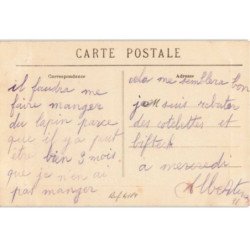 CARTE POSTALE
Correspondance
Adresse
il faudra me
faire manger
du lapin parce
que il y a peut
être bien 3 mois
que je n'en ai
pas manger
cela me semblera bon
suis
des cotelettes et
biftack
a mercredi
Albertine